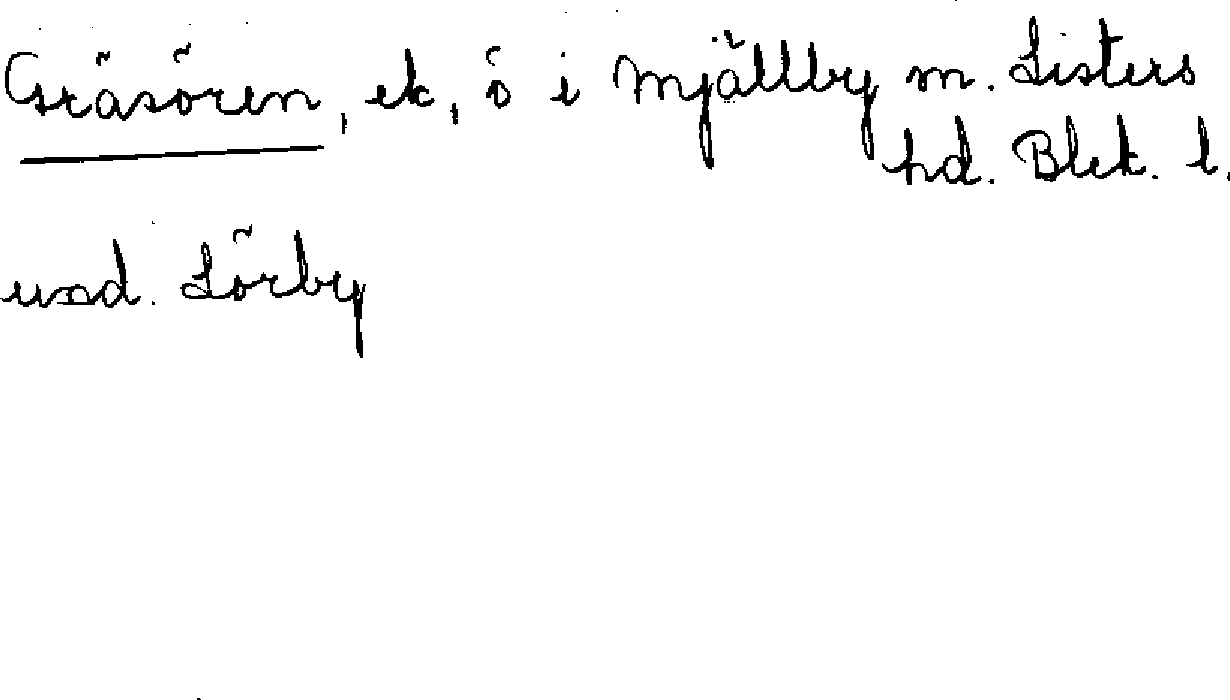 Gräsören, ek, ö i Mjällby m. Listers
hd. Blek. l.
und. Lörby